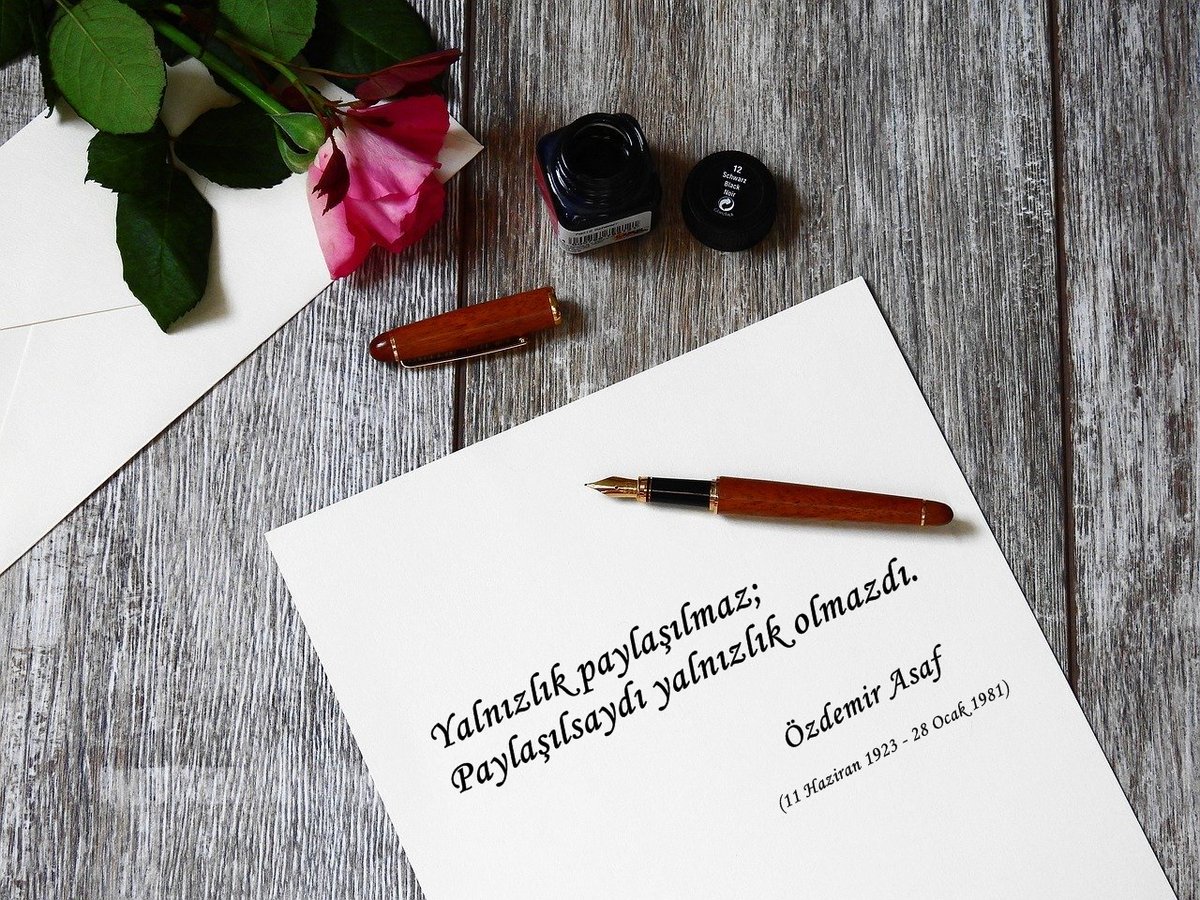 12
Schwarz
Black
Noir
Yalnızlık paylaşılmaz;
Paylaşılsaydı yalnızlık olmazdı.
Özdemir Asaf
(11 Haziran 1923 - 28 Ocak 1981)